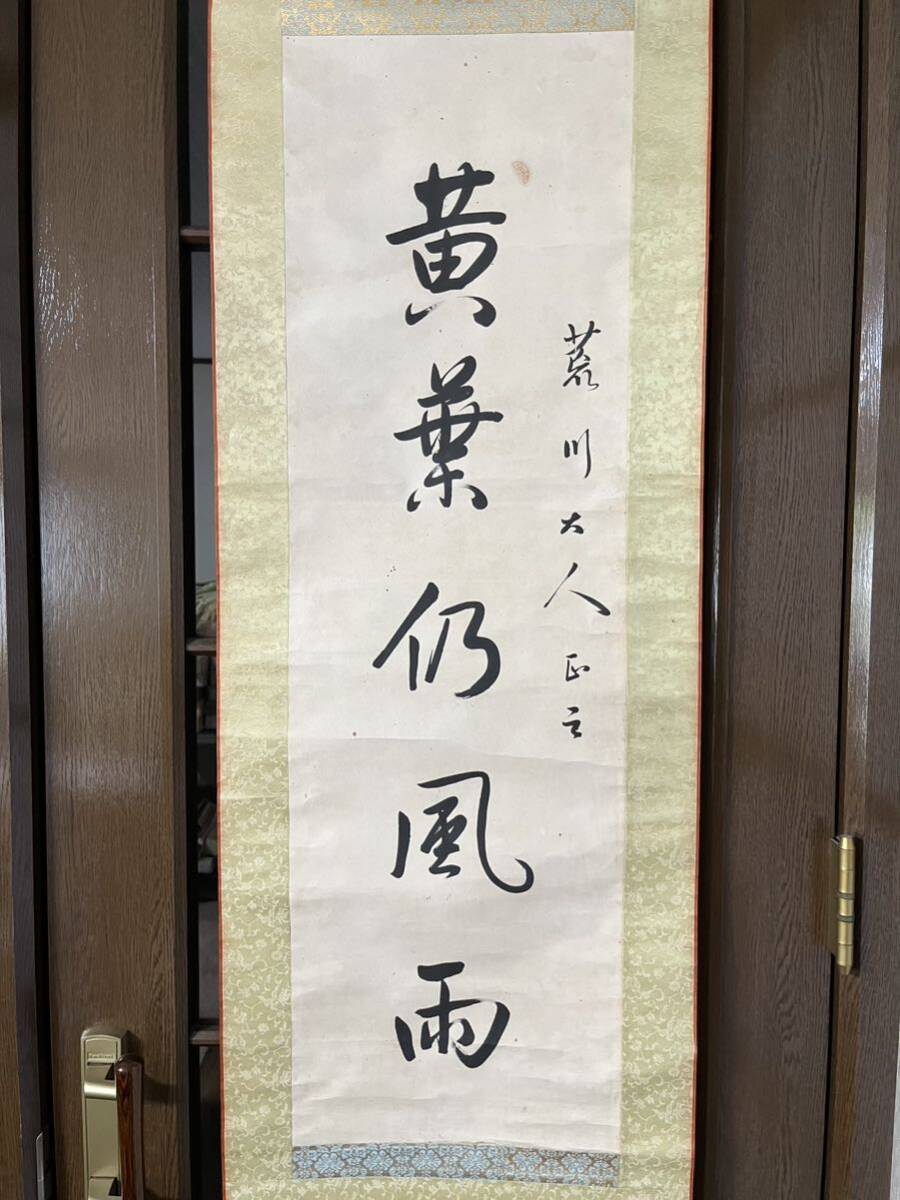 荒川大人正之
黄葉仍風雨